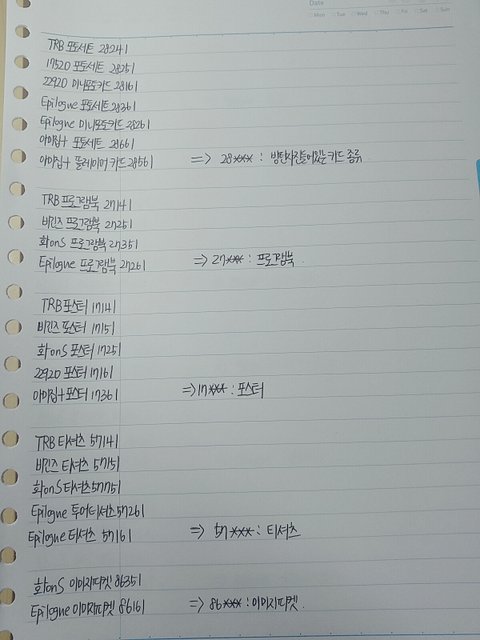 Date
Mon Tue Wed Thu Fri Sat Sun
TRB 포토세트 28241
17520 포토세트 28251
22920 미니포토카드 28161
Epilogue 포토세트 28361
Epilogue 미니포토카드 28261
아미밤+ 포토세트 28661
아미밤+ 플레이어 카드 28561 => 28*** : 방탄사진들어있는 카드 종류
TRB 프로그램북 27141
비긴즈 프로그램북 27251
화onS 프로그램북 27351
Epilogue 프로그램북 27261 => 27*** : 프로그램북
TRB 포스터 17141
비긴즈 포스터 17151
화onS 포스터 17251
22920 포스터 17161
아미밤+ 포스터 17361 => 17*** : 포스터
TRB 티셔츠 57141
비긴즈 티셔츠 57151
화onS 티셔츠 57751
Epilogue 투어티셔츠 57261
Epilogue 티셔츠 57161 => 57*** : 티셔츠
화onS 이미지피켓 86351
Epilogue 이미지피켓 86161 => 86*** : 이미지피켓.